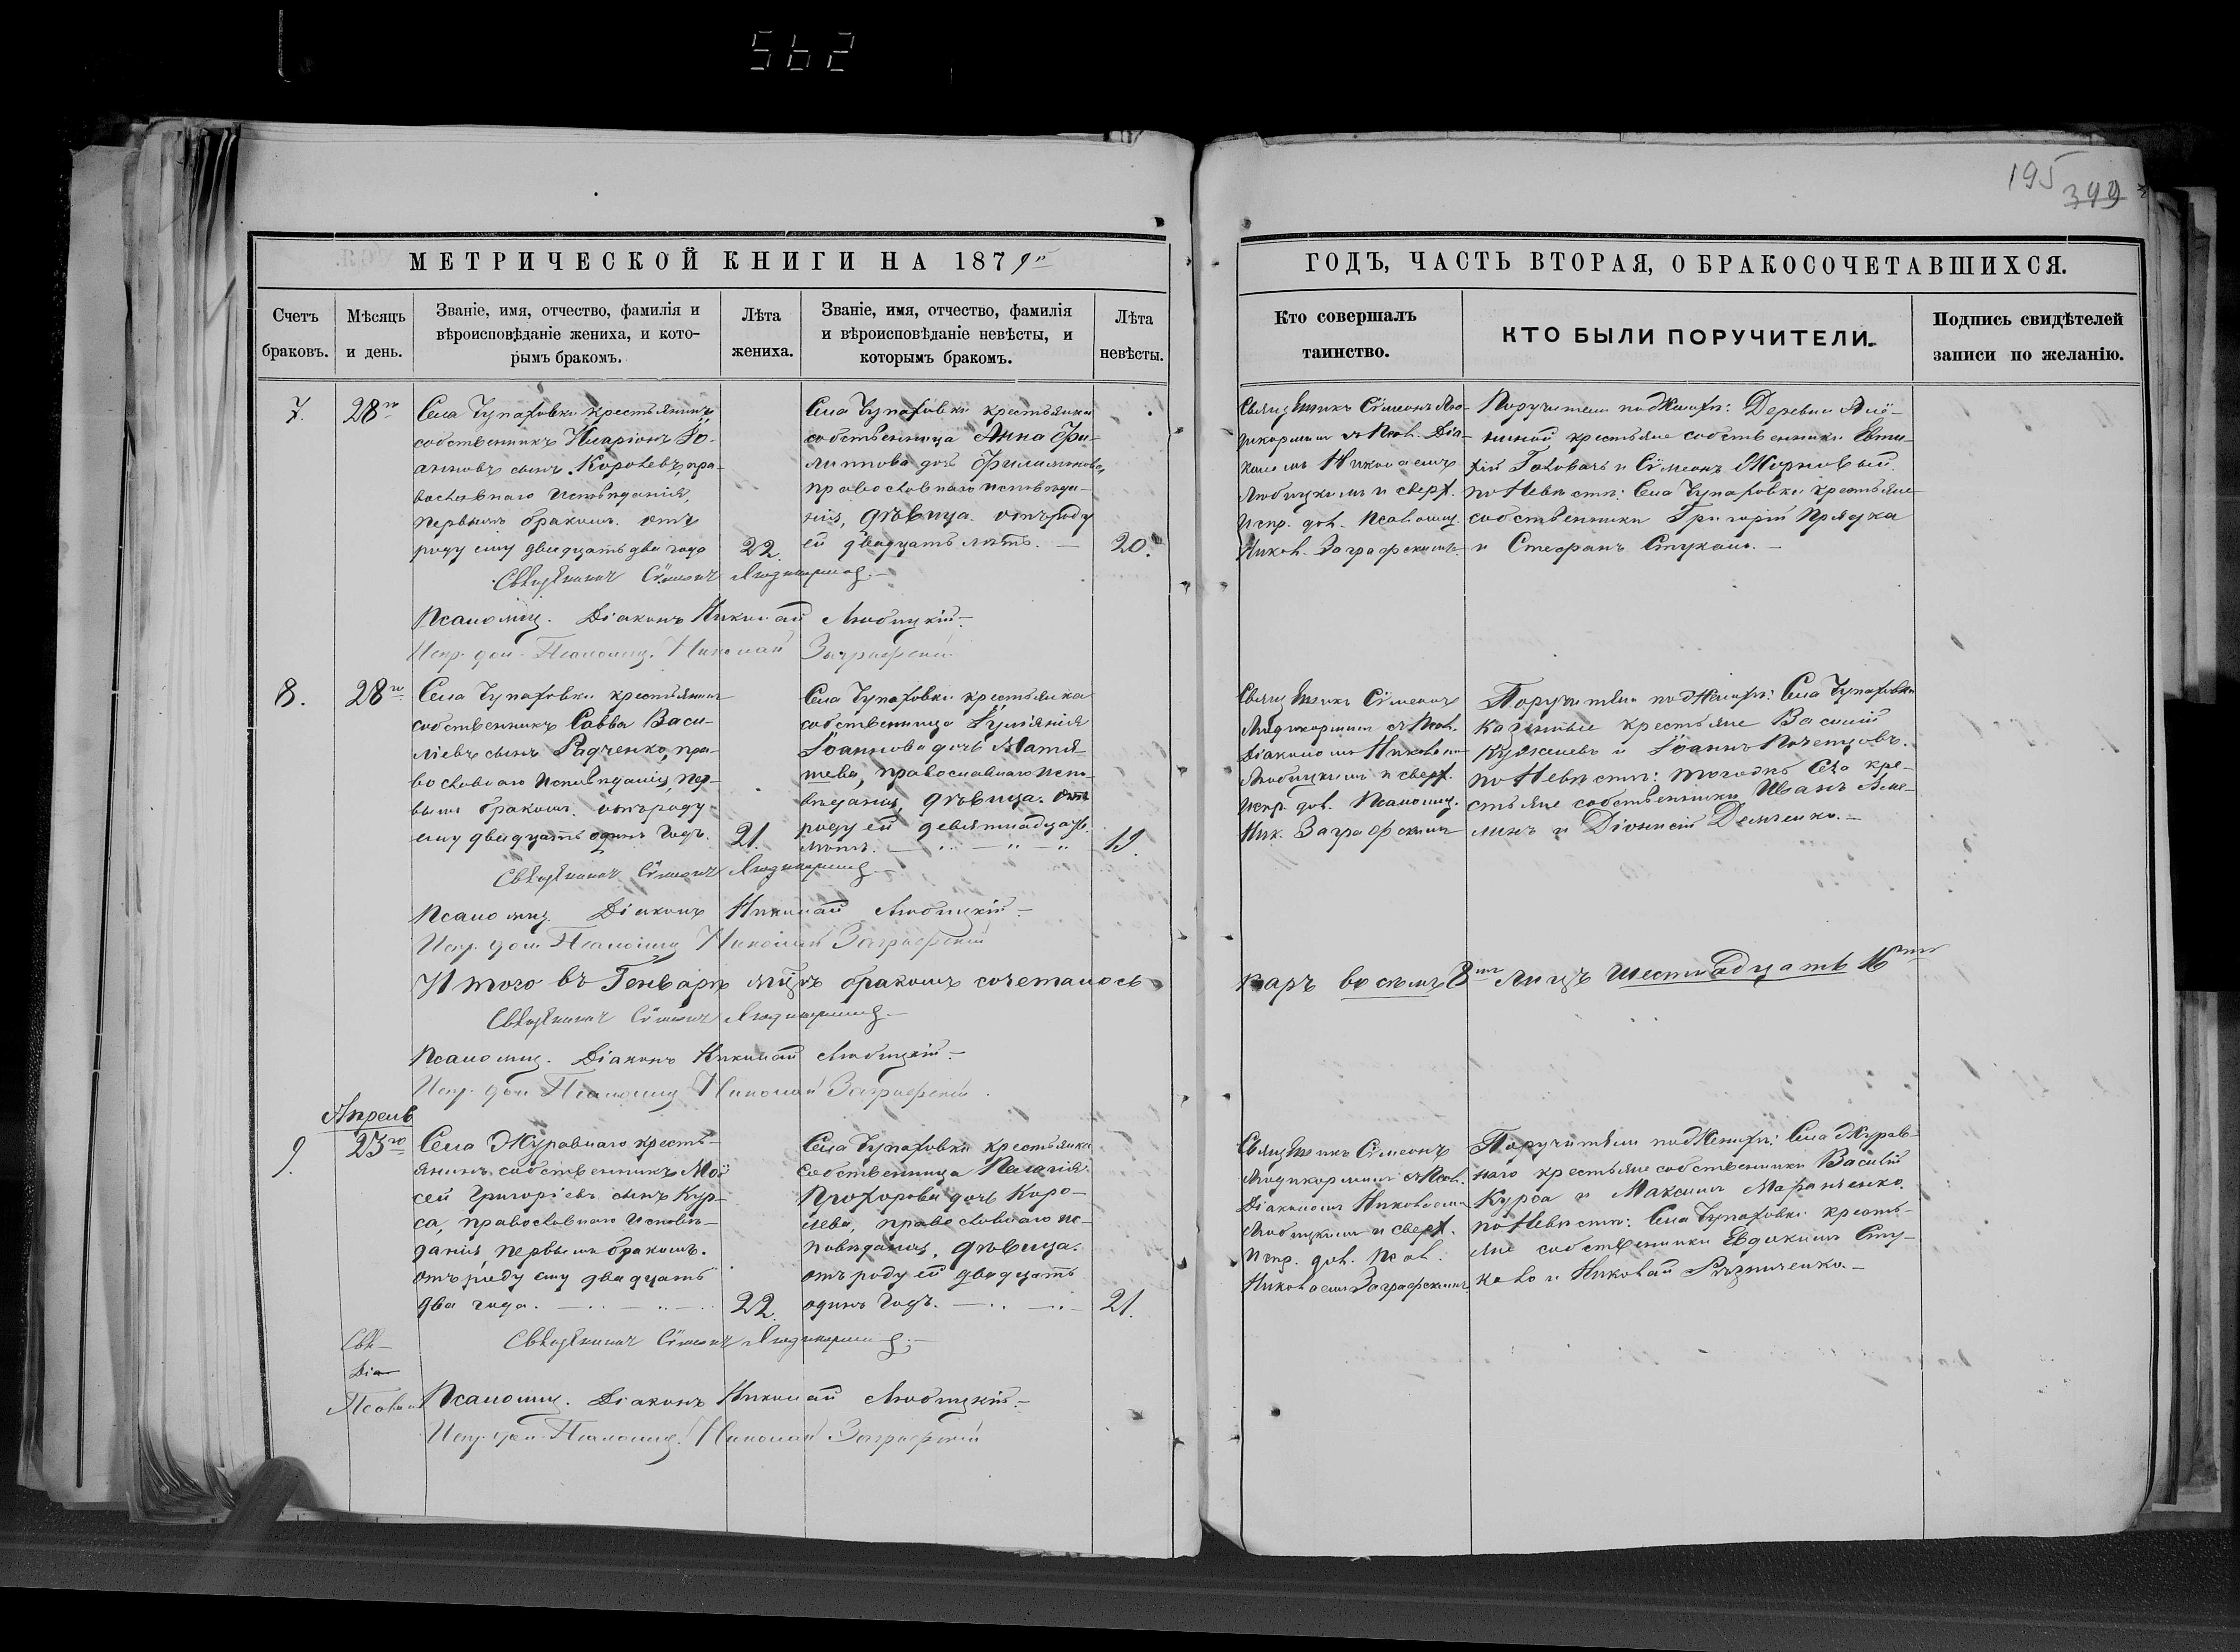 562
195
399
МЕТРИЧЕСКОЙ КНИГИ НА 1879
ГОДЪ, ЧАСТЬ ВТОРАЯ, О БРАКОСОЧЕТАВШИХСЯ.
Счетъ браковъ.
Мѣсяцъ и день.
Званіе, имя, отчество, фамилія и
вѣроисповѣданіе жениха, и кото-
рымъ бракомъ.
Лѣта жениха.
Званіе, имя, отчество, фамилія
и вѣроисповѣданіе невѣсты, и
которымъ бракомъ.
Лѣта невѣсты.
Кто совершалъ
таинство.
КТО БЫЛИ ПОРУЧИТЕЛИ.
Подпись свидѣтелей
записи по желанію.
7.
28го
Села Чупаховки крестьянинъ
собственникъ Иларіонъ Іо-
анновъ сынъ Королевъ, пра-
вославнаго исповѣданія,
первымъ бракомъ. отъ
роду ему двадцать два года
22.
Села Чупаховки крестьянка
собственница Анна Фи-
липпова дочь Филимонова,
православнаго исповѣда-
нія, дѣвица. отъ роду
ей двадцать лѣтъ.
20.
Священникъ Сѵмеонъ
съ Псал. Діа-
кономъ Николаемъ
Любицкимъ и сверх.
испр. дол. Псаломщ.
Никол. Заграфскимъ
Поручители по Женихѣ: Деревни
крестьяне собственники Евти-
хій Головачь и Сѵмеонъ Жорновый.
по Невѣстѣ: Села Чупаховки крестьяне
собственники Григорій Прядка
и Стефанъ Стукало.
Священникъ Сѵмеонъ
Псаломщ. Діаконъ Николай Любицкій.
Испр. дол. Псаломщ. Николай Заграфскій
8.
28го
Села Чупаховки крестьянинъ
собственникъ Савва Васи-
ліевъ сынъ Радченко, пра-
вославнаго исповѣданія, пер-
вымъ бракомъ. отъ роду
ему двадцать одинъ годъ.
21.
Села Чупаховки крестьянка
собственница
Іоаннова дочь Матя-
шева, православнаго испо-
вѣданія, дѣвица. отъ
роду ей девятнадцать
лѣтъ.
19.
Священникъ Сѵмеонъ
съ Псал.
Діакономъ Николаемъ
Любицкимъ и сверх.
испр. дол. Псаломщ.
Ник. Заграфскимъ
Поручители по Женихѣ: Села Чупаховки
казенные крестьяне Василій
и Іоаннъ Почепцовъ.
по Невѣстѣ: тогожъ Села кре-
стьяне собственники Иванъ
и Діонисій Демченко.
Священникъ Сѵмеонъ
Псаломщ. Діаконъ Николай Любицкій.
Испр. дол. Псаломщ. Николай Заграфскій
Итого въ Генварѣ мѣсяцѣ бракомъ сочеталось
паръ восемь 8 лицъ шестнадцать 16
Священникъ Сѵмеонъ
Псаломщ. Діаконъ Николай Любицкій.
Испр. дол. Псаломщ. Николай Заграфскій
Апрель
9.
23го
Села Журавнаго кресть-
янинъ собственникъ Мои-
сей Григоріевъ сынъ Кур-
са, православнаго исповѣ-
данія, первымъ бракомъ.
отъ роду ему двадцать
два года.
22.
Села Чупаховки крестьянка
собственница Пелагія
Прохорова дочь Коро-
лева, православнаго ис-
повѣданія, дѣвица.
отъ роду ей двадцать
одинъ годъ.
21.
Священникъ Сѵмеонъ
съ Псал.
Діакономъ Николаемъ
Любицкимъ и сверх.
испр. дол. Псал.
Николаемъ Заграфскимъ
Поручители по Женихѣ: Села Журав-
наго крестьяне собственники Василій
Курса и Максимъ
по Невѣстѣ: Села Чупаховки кресть-
яне собственники Евдокимъ Сту-
кало и Николай Рѣзниченко.
Священникъ Сѵмеонъ
Діа
Псаломщ. Діаконъ Николай Любицкій.
Испр. дол. Псаломщ. Николай Заграфскій